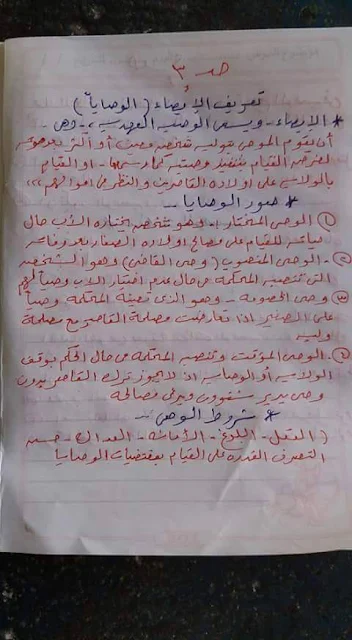 صـ ٣
تعريف الإيصاء (الوصايا)
* الإيصاء - ويسمى الوصية العهديه ،، وهى -
أن يقوم الموصى بتولية شخص معين أو أكثر بعد موته
لغرض القيام بتنفيذ وصيته كما رسمها - او القيام
بالولاية على اولاده القاصرين والنظر فى اموالهم ،،
* صور الوصايا -
١ الوصى المختار :- وهو شخص يختاره الأب حال
حياته للقيام على مصالح اولاده الصغار بعد وفاته
٢ - الوصى المنصوب (وصى القاضى) وهو الشخص
التى تنصبه المحكمة فى حال عدم اختيار الاب وصياً لهم
٣ وصى الخصومة - وهو الذى تعينة المحكمة وصياً
على الصغير اذا تعارضت مصلحة القاصر مع مصلحة
وليه
٤ - الوصى المؤقت وتنصبه المحكمة فى حال الحكم بوقف
الولاية أو الوصاية اذ لا يجوز ترك القاصر بدون
وصى يدير شئوون ويرعى مصالحة
* شروط الوصى -
( العقل - البلوغ - الأمانة - العداله - حسن
التصرف القدره على القيام بمقتضيات الوصايا